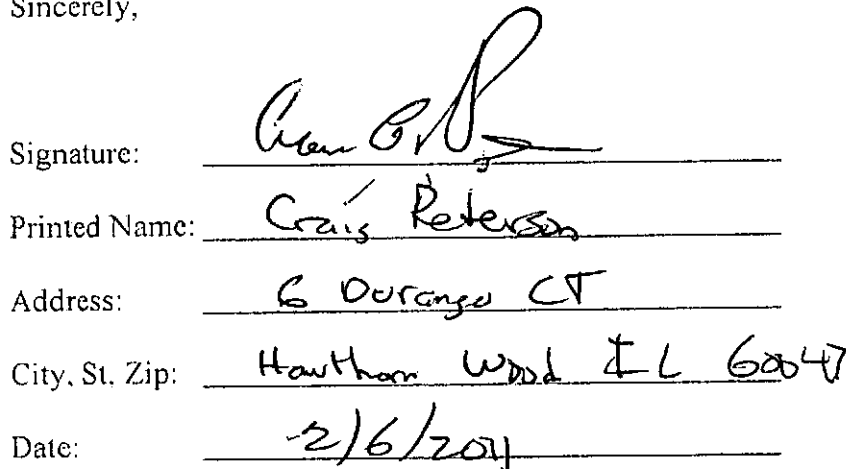 Sincerely,
Signature:
Printed Name: Craig Peterson
Address: 6 Durango CT
City, St. Zip: Hawthorn Wood IL 60047
Date: 2/6/2011